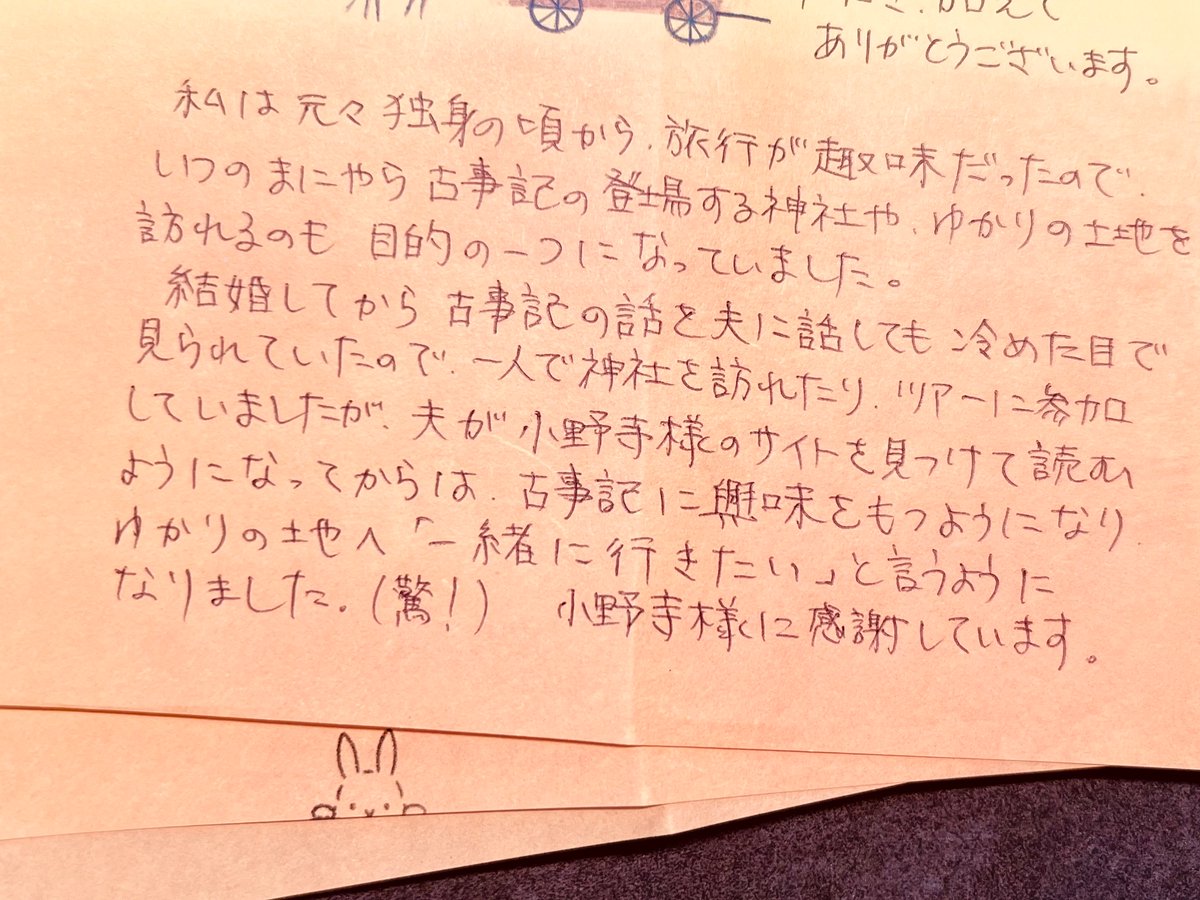 ありがとうございます。
私は元々独身の頃から、旅行が趣味だったので、
いつのまにやら古事記の登場する神社や、ゆかりの土地を
訪れるのも目的の一つになっていました。
結婚してから古事記の話を夫に話しても冷めた目で
見られていたので、一人で神社を訪れたり、ツアーに参加
していましたが、夫が小野寺様のサイトを見つけて読む
ようになってからは、古事記に興味をもつようになり
ゆかりの土地へ「一緒に行きたい」と言うように
なりました。(驚!) 小野寺様に感謝しています。